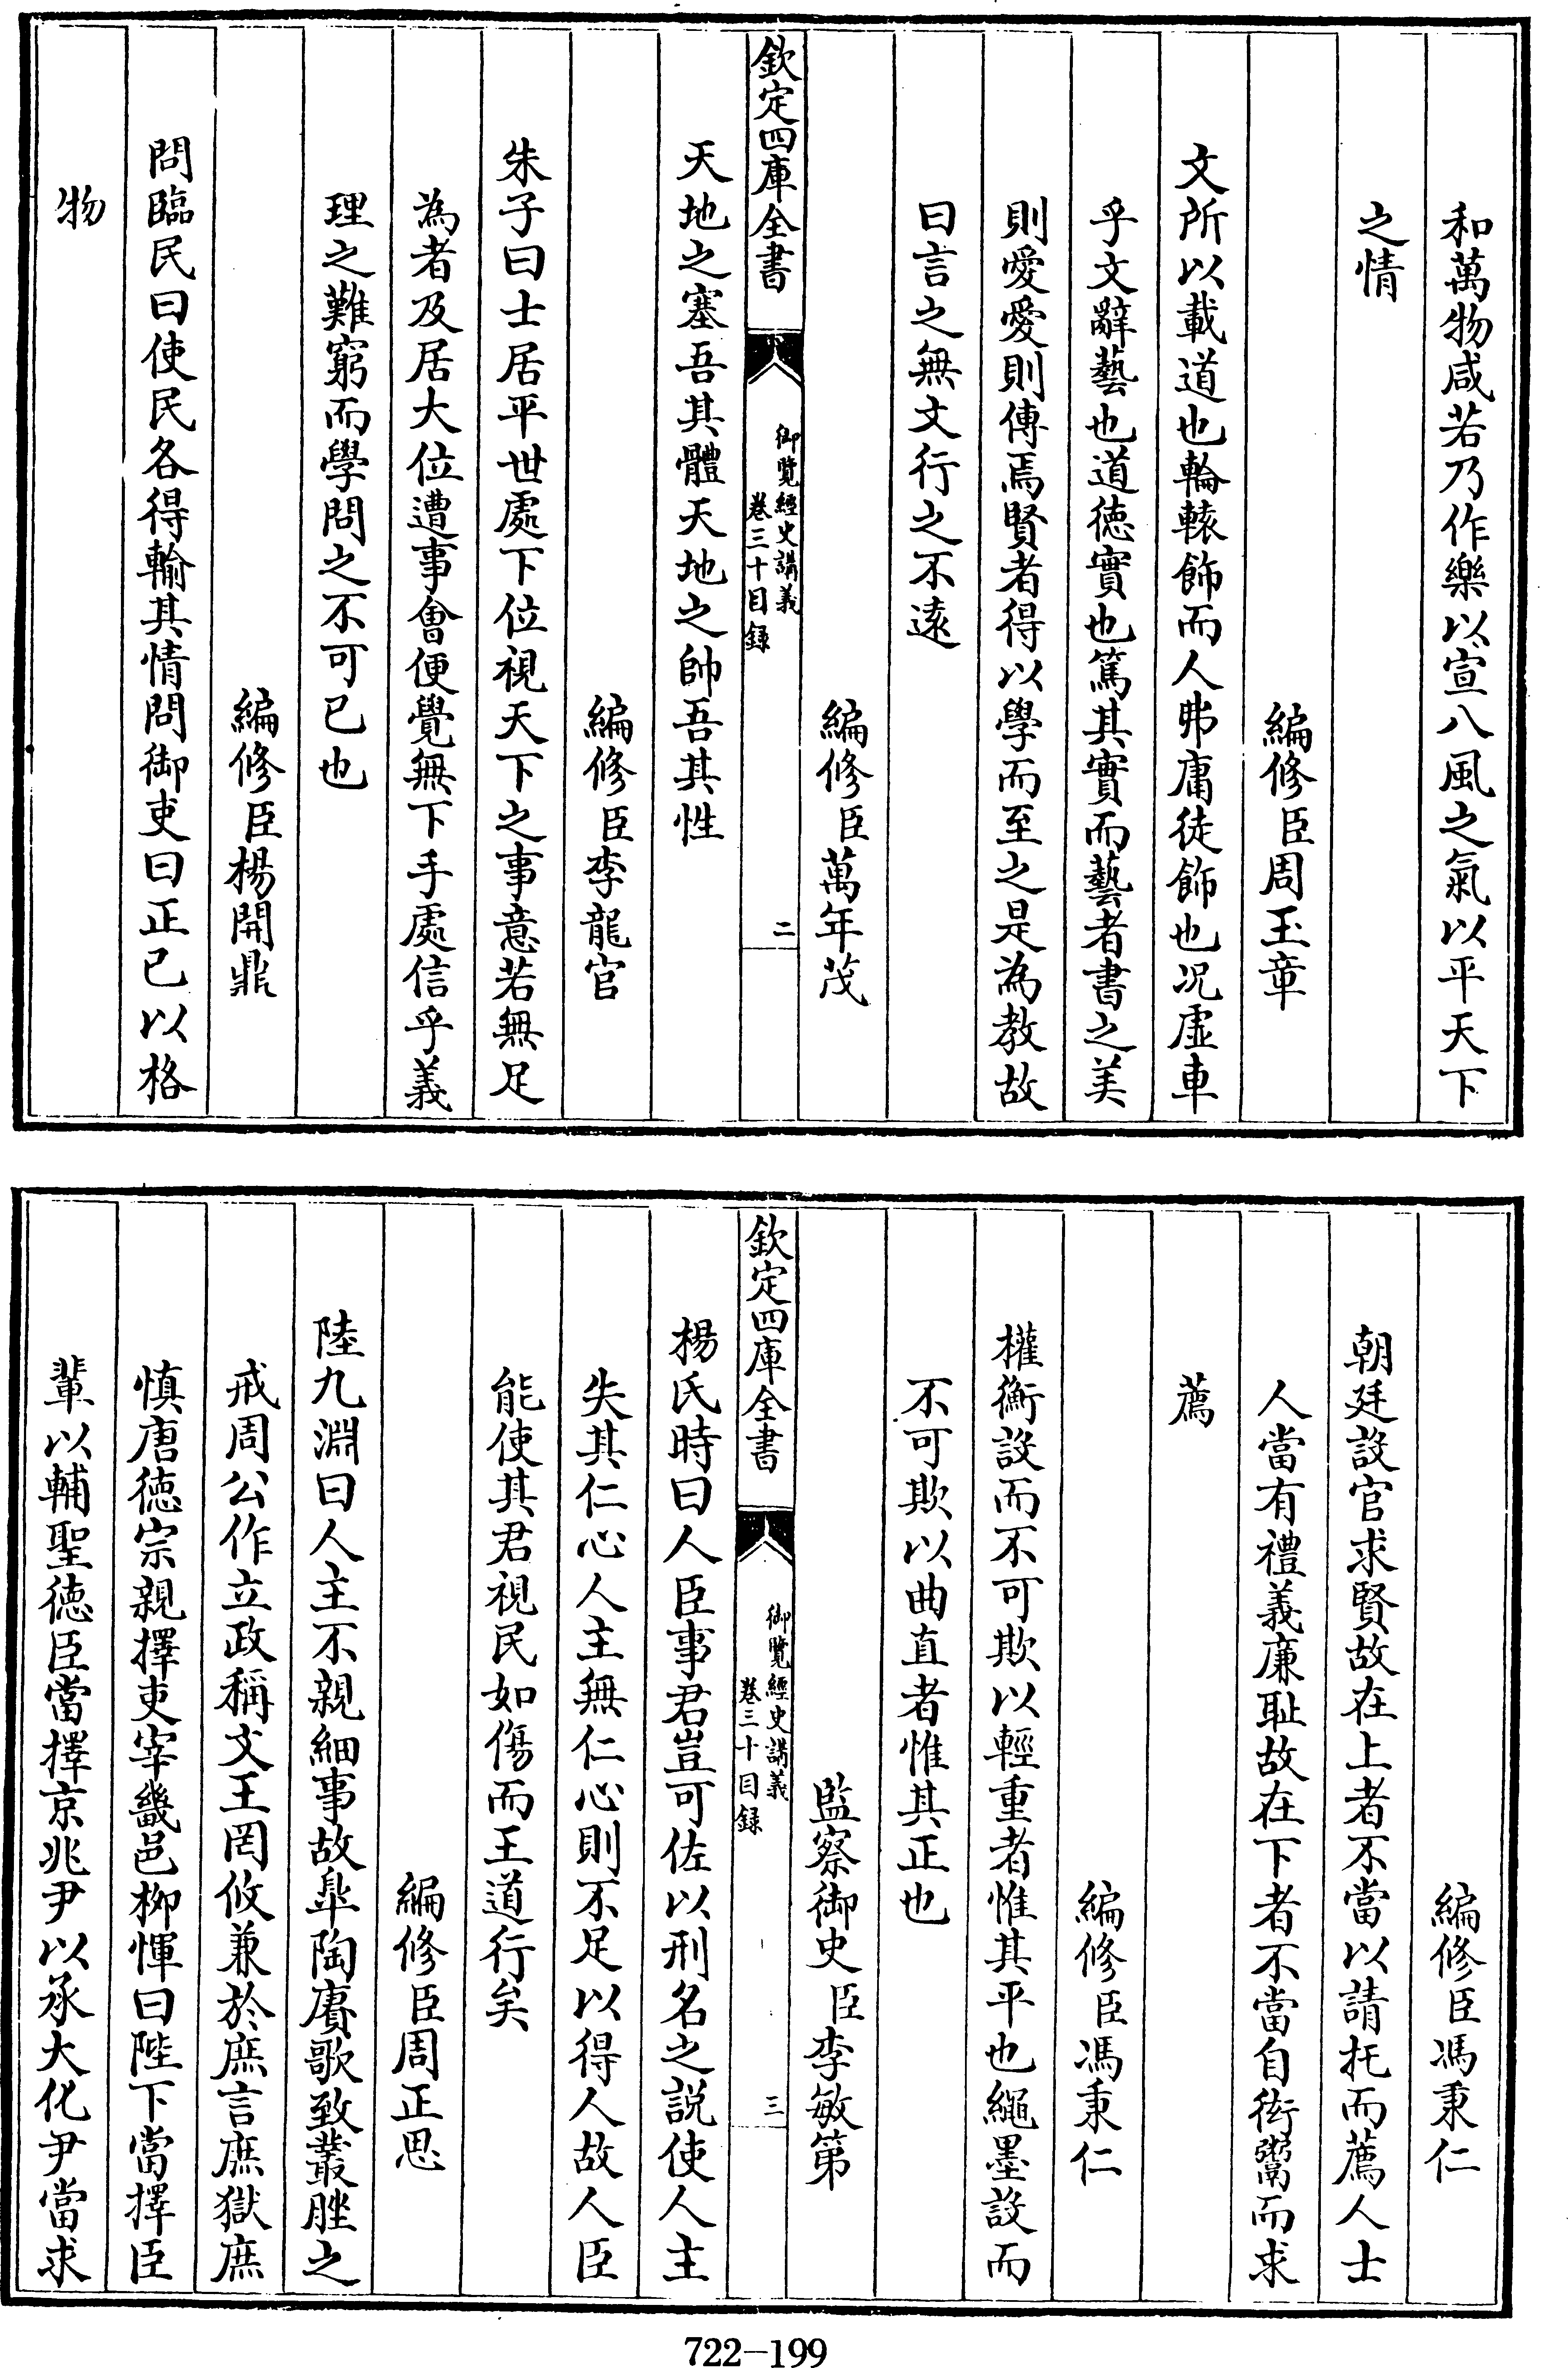 和萬物咸若乃作樂以宣八風之氣以平天下
之情
編修臣周玉章
文所以載道也輪轅飾而人弗庸徒飾也况虛車
乎文辭藝也道徳實也篤其實而藝者書之美
則愛愛則傳焉賢者得以學而至之是為教故
曰言之無文行之不遠
編修臣萬年茂
欽定四庫全書
御覽經史講義
卷三十目録
二
天地之塞吾其體天地之帥吾其性
編修臣李龍官
朱子曰士居平世處下位視天下之事意若無足
為者及居大位遭事會便覺無下手處信乎義
理之難窮而學問之不可已也
編修臣楊開鼎
問臨民曰使民各得輸其情問御吏曰正已以格
物
編修臣馮秉仁
朝廷設官求賢故在上者不當以請托而薦人士
人當有禮義廉耻故在下者不當自衒鬻而求
薦
編修臣馮秉仁
權衡設而不可欺以輕重者惟其平也繩墨設而
不可欺以曲直者惟其正也
監察御史臣李敏第
欽定四庫全書
御覽經史講義
卷三十目録
三
楊氏時曰人臣事君豈可佐以刑名之說使人主
失其仁心人主無仁心則不足以得人故人臣
能使其君視民如傷而王道行矣
編修臣周正思
陸九淵曰人主不親細事故臯陶賡歌致叢脞之
戒周公作立政稱文王罔攸兼於庶言庶獄庶
慎唐徳宗親擇吏宰畿邑柳惲曰陛下當擇臣
輩以輔聖徳臣當擇京兆尹以承大化尹當求
722-199